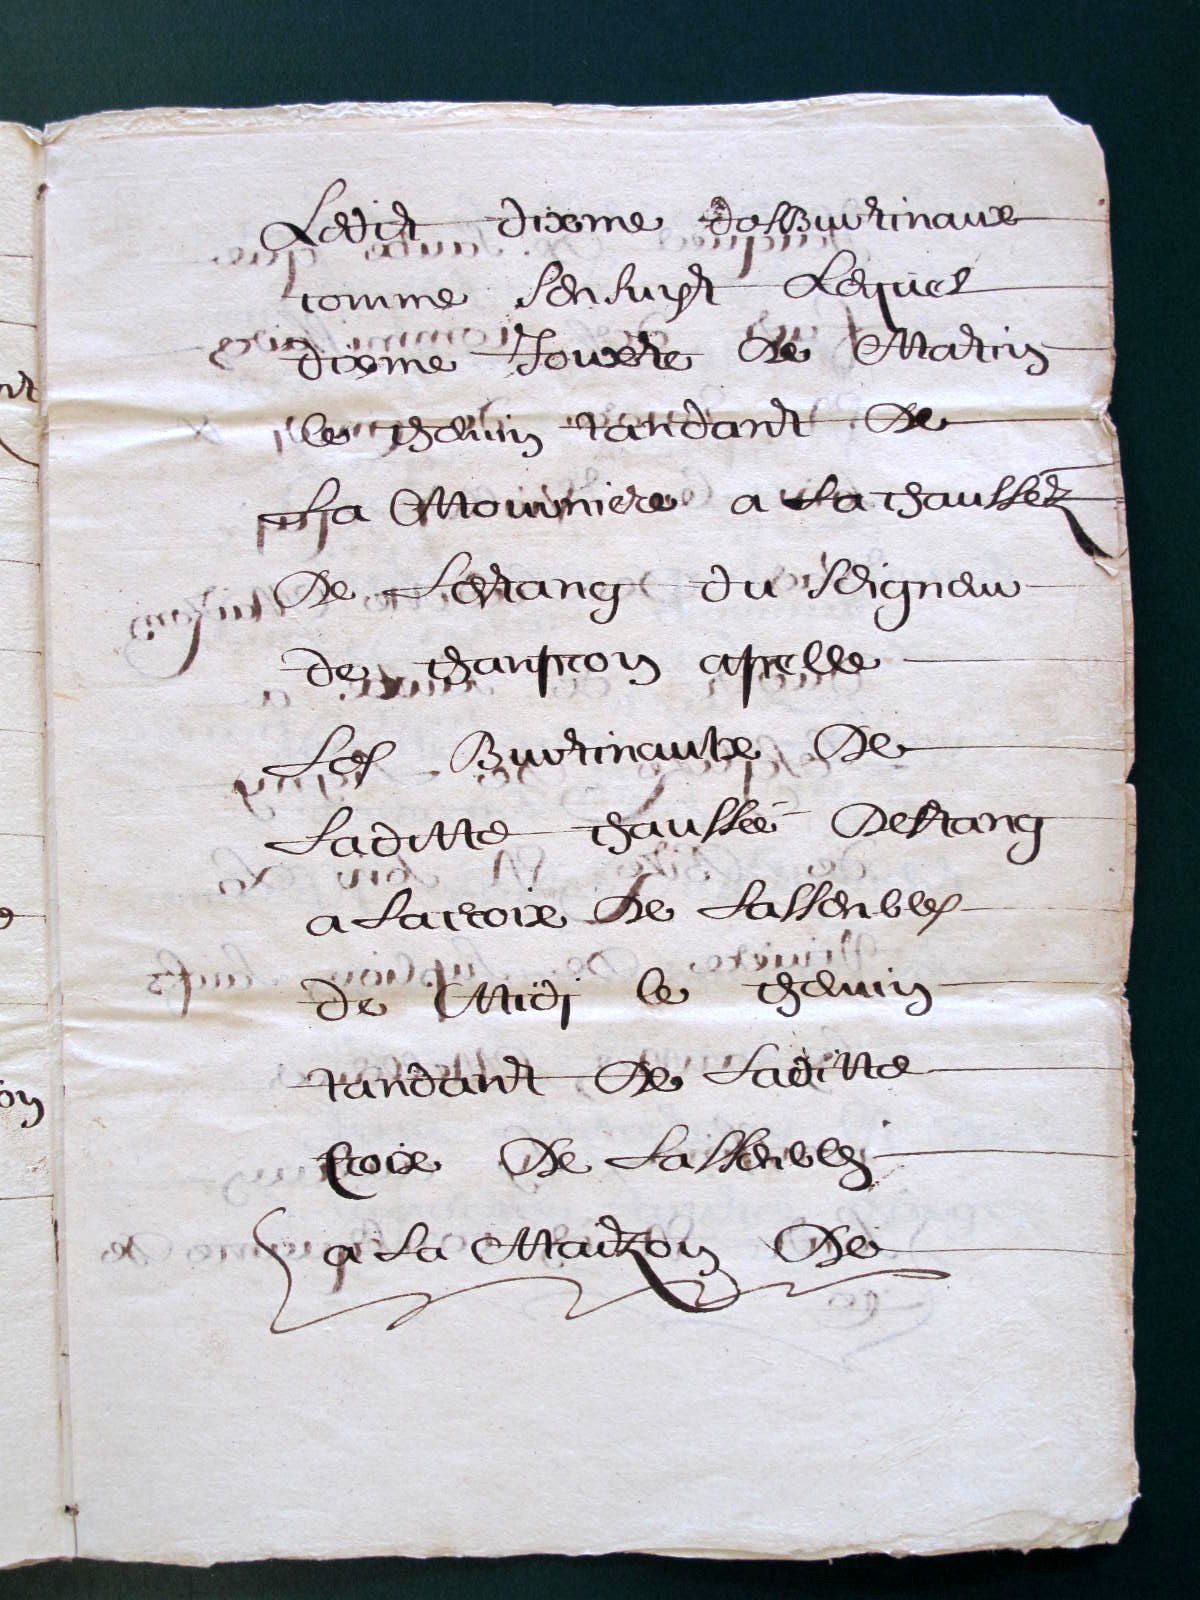 Ledit dixme des Burtinaux
comme sensuyt Lequel
dixme Jouxte de Matin
le chemin tandant de
La Mouniere a La chaussée
de Letang du seigneur
de chanpcon apelle
Les Burtinaulx de
Laditte chaussée destang
a La croix de Lassenblés
de Midj le chemin
tandant de Laditte
croix de Lassenblés
a La Maizon de